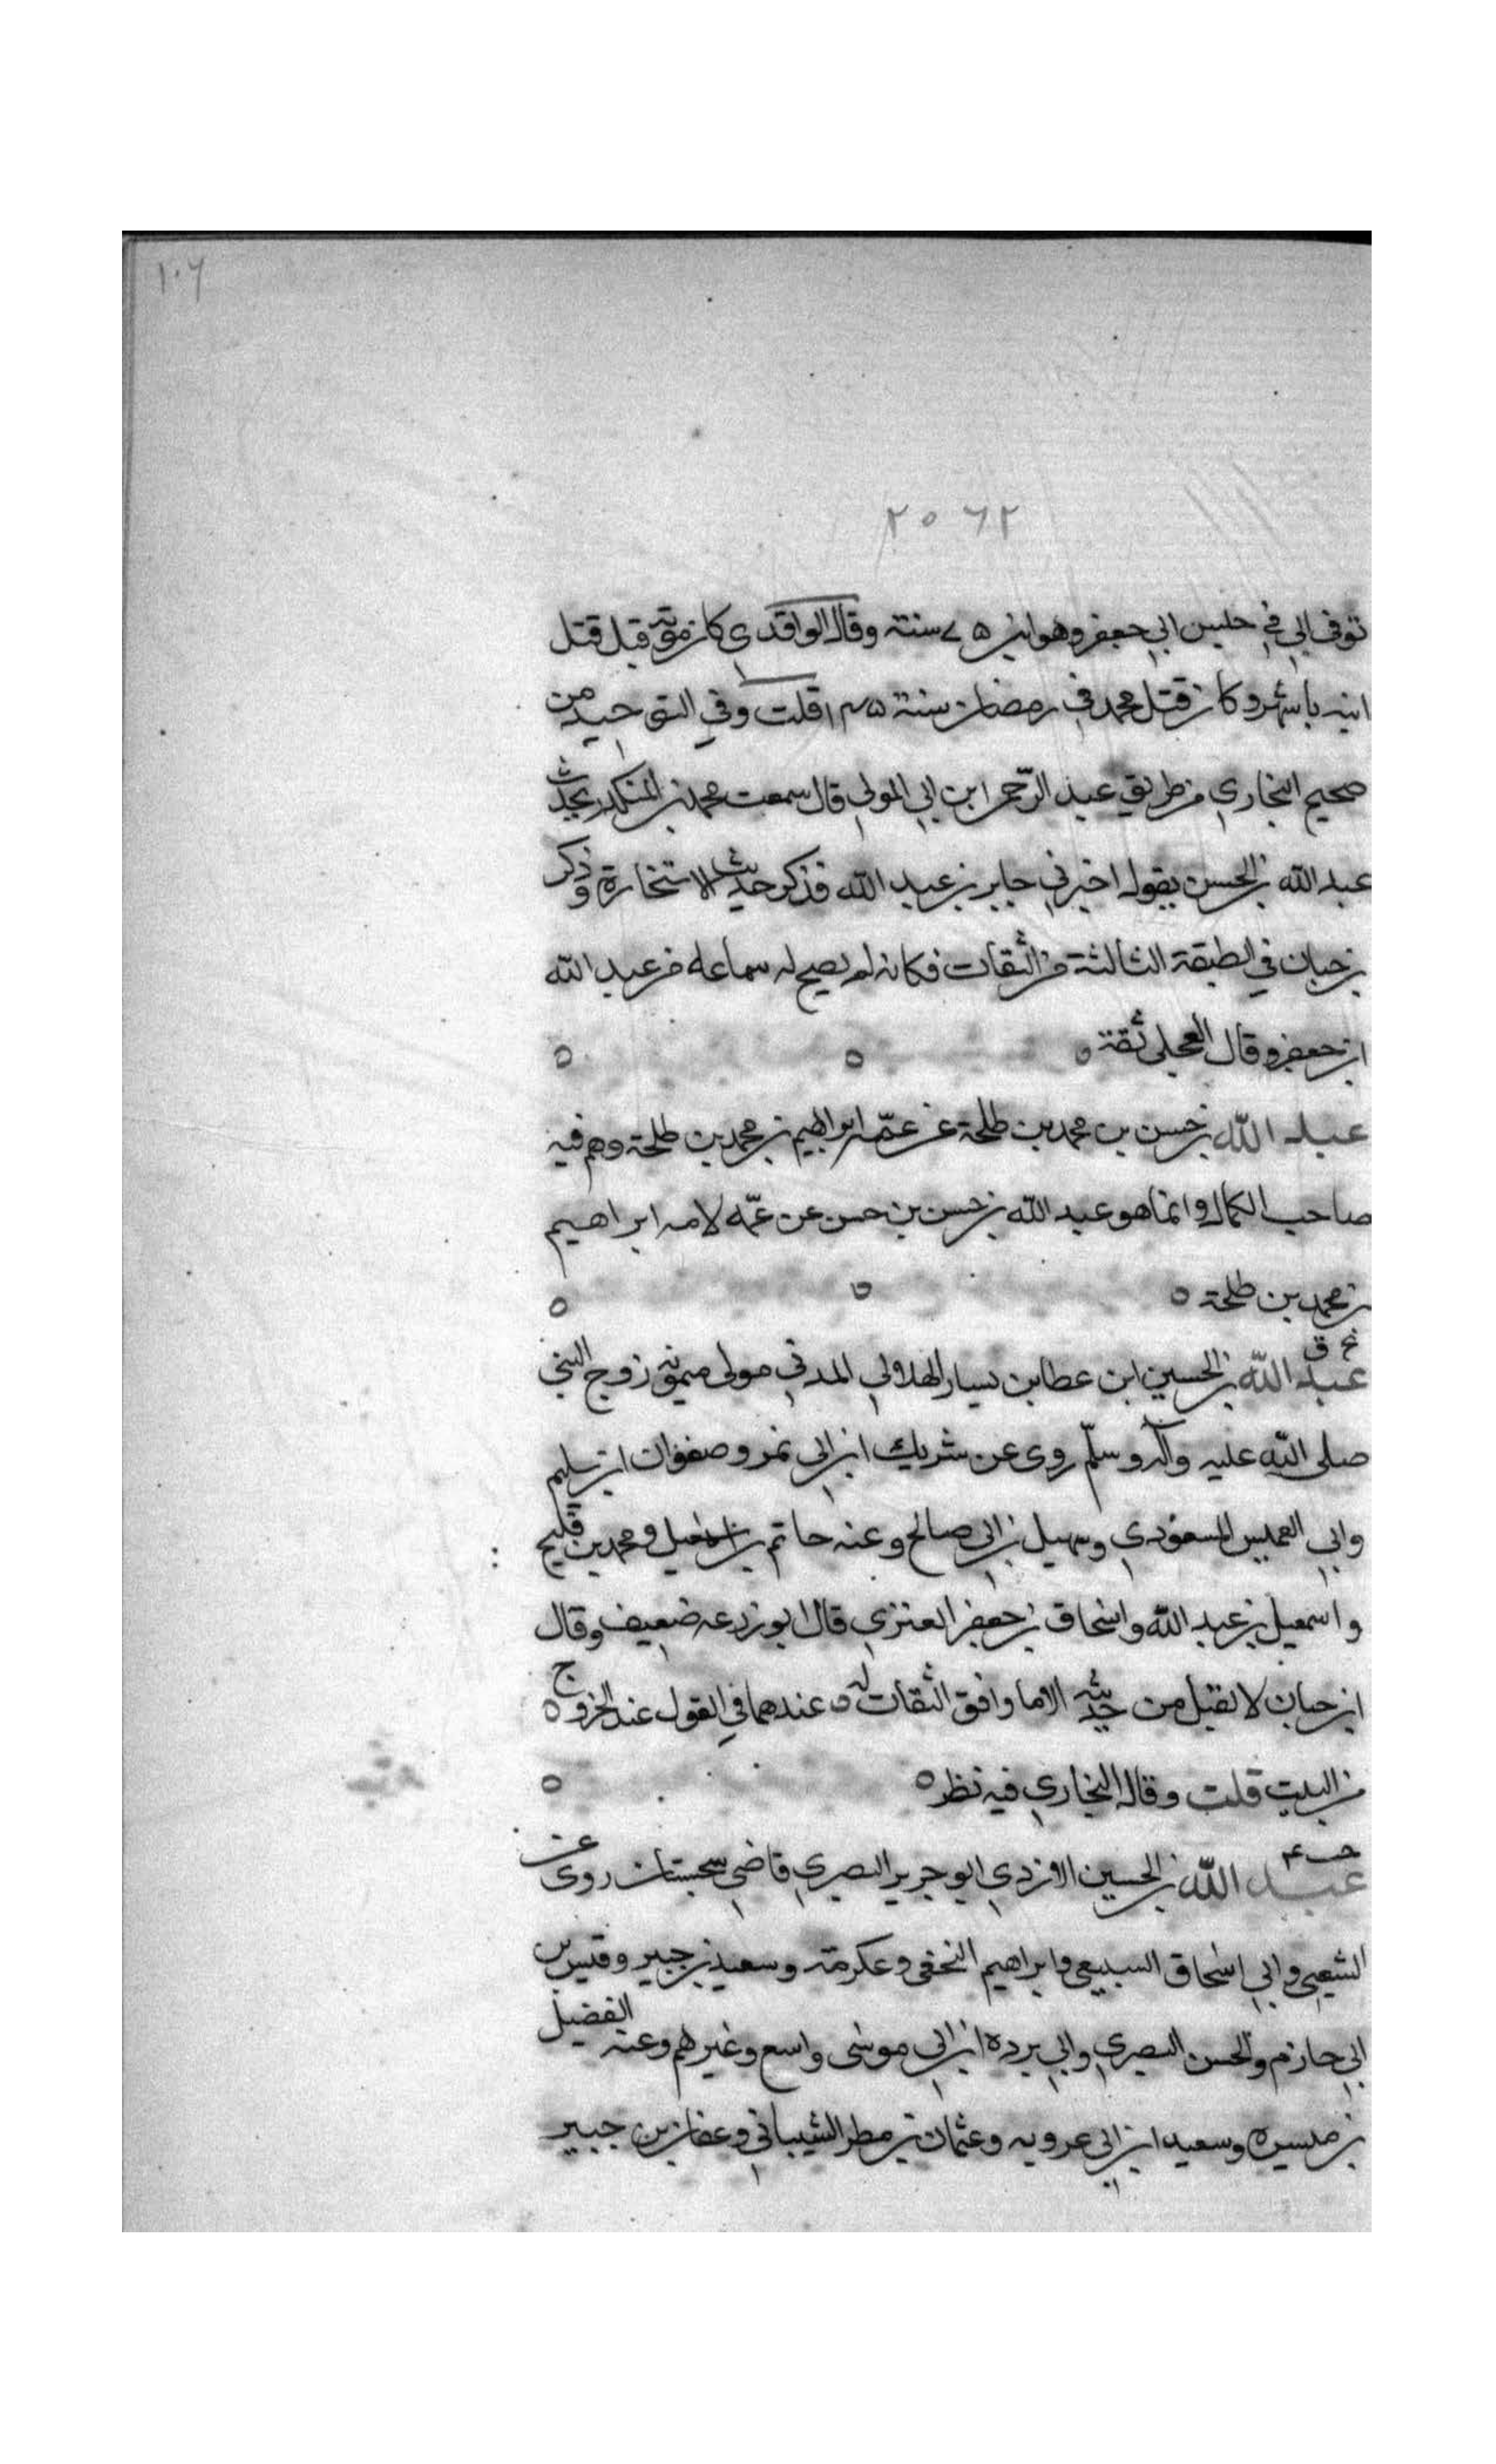 ١٠٦
٢٥٦٢
توفى ابي في حبس ابي جعفر وهو ابن ٧٥ سنة وقال الواقدي كان موته قبل قتل
ابنه باشهر وكان قتل محمد في رمضان سنة ١٤٥ قلت وفي التوحيد من
صحيح البخاري من طريق عبد الرحمن ابن ابي الموالي قال سمعت محمد بن المنكدر يحدث
عبد الله بن الحسن يقول اخبرني جابر بن عبد الله فذكر حديث الاستخارة وذكر
بن حبان في الطبقة الثالثة من الثقات فكانه لم يصح له سماعه من عبد الله
ابن جعفر وقال العجلي ثقة ٥ ٥ ٥
عبد الله بن حسن بن محمد بن طلحة عن عمه ابراهيم بن محمد بن طلحة وهم فيه
صاحب الكمال وانما هو عبد الله بن حسن بن حسن عن عمه لامه ابراهيم
بن محمد بن طلحة ٥ ٥ ٥
بخ ق
عبد الله بن الحسين ابن عطا بن يسار الهلالي المدني مولى ميمونة زوج النبي
صلى الله عليه وآله وسلم روى عن شريك ابن ابي نمر وصفوان ابن سليم
وابي العميس المسعودي وسهيل بن ابي صالح وعنه حاتم بن اسمعيل ومحمد بن فليح
واسمعيل بن عبد الله واسحاق بن جعفر العنزي قال ابو زرعه ضعيف وقال
ابن حبان لا يقبل من حديثه الا ما وافق الثقات له عندهما في القول عند الخروج ٥
من البيت قلت وقال البخاري فيه نظر ٥ ٥
خت ٤
عبد الله بن الحسين الازدي ابو جرير البصري قاضي سجستان روى عن
الشعبي وابي اسحاق السبيعي وابراهيم النخعي وعكرمة وسعيد بن جبير وقيس بن
ابي حازم والحسن البصري وابي برده ابن ابي موسى واسع وغيرهم وعنه الفضيل
بن ميسره وسعيد ابن ابي عروبه وعثمان بن مطر الشيباني وعفان بن جبير